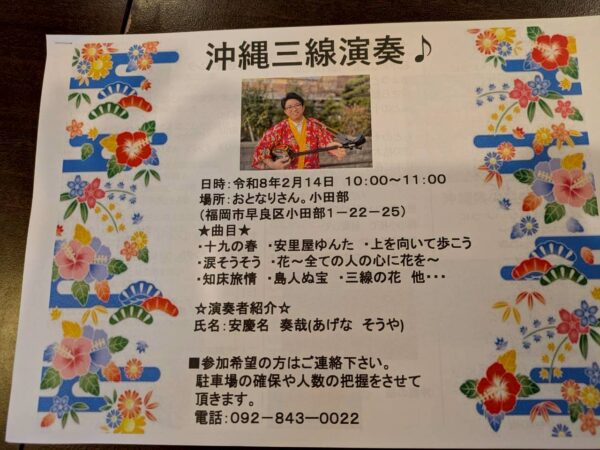 沖縄三線演奏♪
日時：令和8年2月14日 10:00～11:00
場所：おとなりさん。小田部
（福岡市早良区小田部1－22－25）
★曲目★
・十九の春 ・安里屋ゆんた ・上を向いて歩こう
・涙そうそう ・花～全ての人の心に花を～
・知床旅情 ・島人ぬ宝 ・三線の花 他・・・
☆演奏者紹介☆
氏名：安慶名 奏哉(あげな そうや)
■参加希望の方はご連絡下さい。
駐車場の確保や人数の把握をさせて
頂きます。
電話：092－843―0022